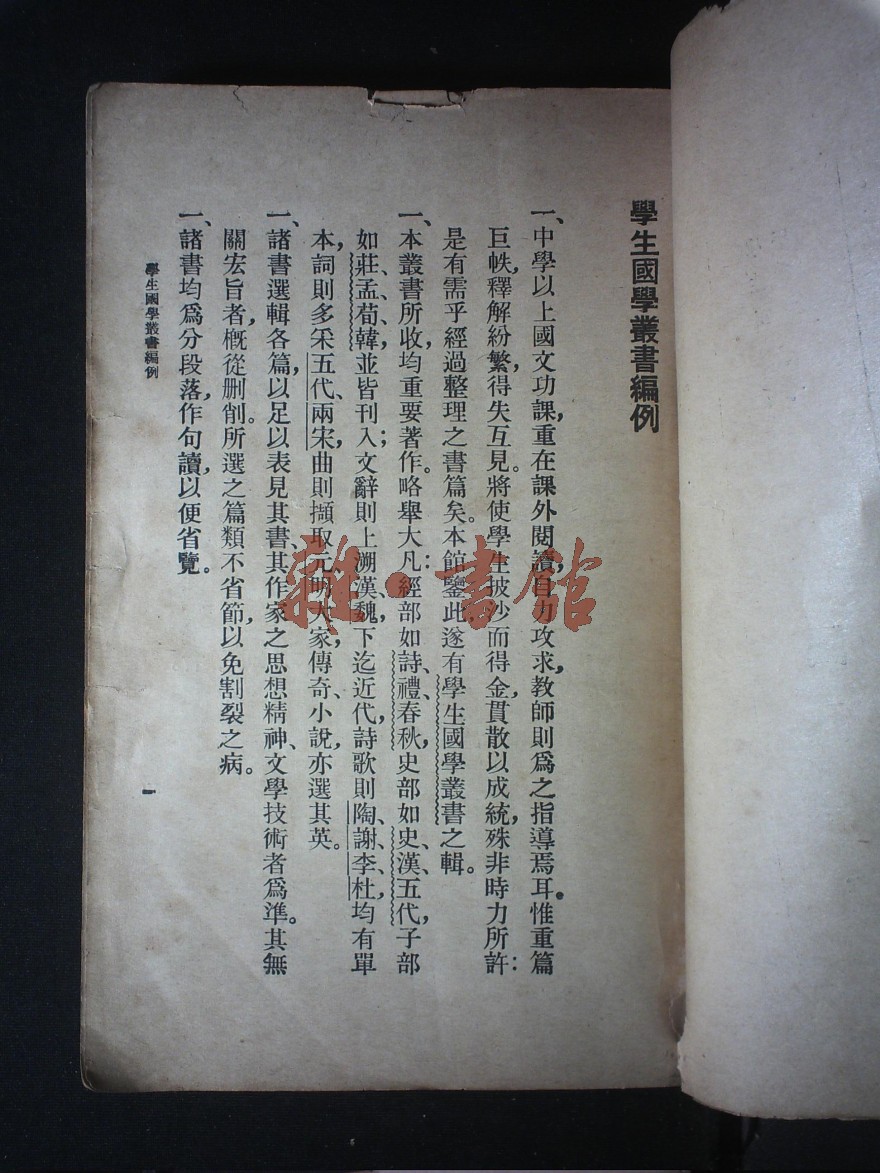 學生國學叢書編例
一、中學以上國文功課，重在課外閱讀，自力攻求，教師則爲之指導焉耳。惟重篇
巨帙，釋解紛繁，得失互見。將使學生披沙而得金，貫散以成統，殊非時力所許：
是有需乎經過整理之書篇矣。本館鑒此，遂有學生國學叢書之輯。
一、本叢書所收，均重要著作。略舉大凡：經部如詩、禮、春秋，史部如史、漢、五代，子部
如莊、孟、荀、韓，並皆刊入；文辭則上溯漢、魏，下迄近代，詩歌則陶、謝、李、杜，均有單
本，詞則多采五代、兩宋，曲則擷取元、明大家，傳奇、小說，亦選其英。
一、諸書選輯各篇，以足以表見其書、其作家之思想精神、文學技術者爲準。其無
關宏旨者，槪從刪削。所選之篇類不省節，以免割裂之病。
一、諸書均爲分段落，作句讀，以便省覽。
學生國學叢書編例
一
雜·書館